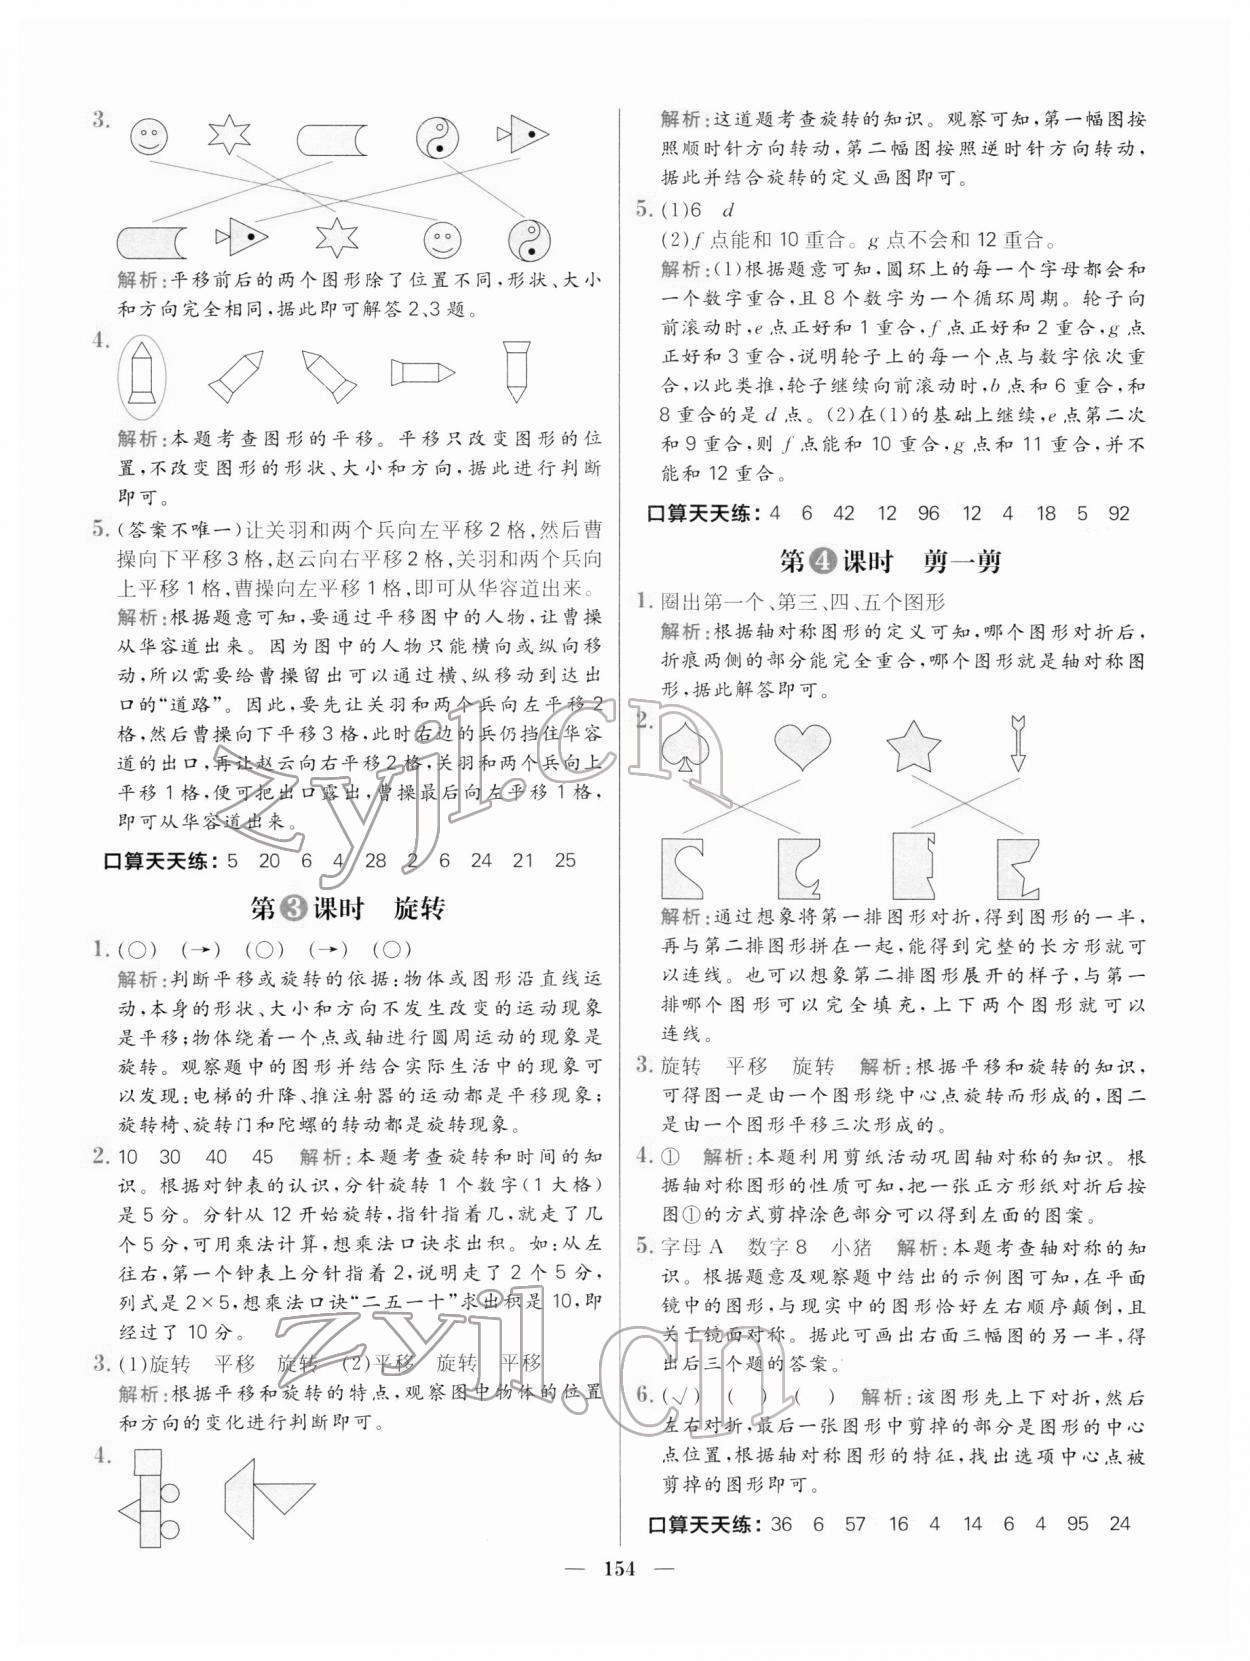 3.
解析:平移前后的两个图形除了位置不同,形状、大小
和方向完全相同,据此即可解答2、3题。
4.
解析:本题考查图形的平移。平移只改变图形的位
置,不改变图形的形状、大小和方向,据此进行判断
即可。
5.(答案不唯一)让关羽和两个兵向左平移2格,然后曹
操向下平移3格,赵云向右平移2格,关羽和两个兵向
上平移1格,曹操向左平移1格,即可从华容道出来。
解析:根据题意可知,要通过平移图中的人物,让曹操
从华容道出来。因为图中的人物只能横向或纵向移
动,所以需要给曹操留出可以通过横、纵移动到达出
口的“道路”。因此,要先让关羽和两个兵向左平移2
格,然后曹操向下平移3格,此时右边的兵仍挡住华容
道的出口,再让赵云向右平移2格,关羽和两个兵向上
平移1格,便可把出口露出,曹操最后向左平移1格,
即可从华容道出来。
口算天天练: 5 20 6 4 28 2 6 24 21 25
第3课时 旋转
1.(○) (→) (○) (→) (○)
解析:判断平移或旋转的依据:物体或图形沿直线运
动,本身的形状、大小和方向不发生改变的运动现象
是平移;物体绕着一个点或轴进行圆周运动的现象是
旋转。观察题中的图形并结合实际生活中的现象可
以发现:电梯的升降、推注射器的运动都是平移现象;
旋转椅、旋转门和陀螺的转动都是旋转现象。
2. 10 30 40 45 解析:本题考查旋转和时间的知
识。根据对钟表的认识,分针旋转1个数字(1大格)
是5分。分针从12开始旋转,指针指着几,就走了几
个5分,可用乘法计算,想乘法口诀求出积。如:从左
往右,第一个钟表上分针指着2,说明走了2个5分,
列式是2×5,想乘法口诀“二五一十”求出积是10,即
经过了10分。
3.(1)旋转 平移 旋转 (2)平移 旋转 平移
解析:根据平移和旋转的特点,观察图中物体的位置
和方向的变化进行判断即可。
4.
解析:这道题考查旋转的知识。观察可知,第一幅图按
照顺时针方向转动,第二幅图按照逆时针方向转动,
据此并结合旋转的定义画图即可。
5.(1)6 d
(2)f点能和10重合。g点不会和12重合。
解析:(1)根据题意可知,圆环上的每一个字母都会和
一个数字重合,且8个数字为一个循环周期。轮子向
前滚动时,e点正好和1重合,f点正好和2重合,g点
正好和3重合,说明轮子上的每一个点与数字依次重
合,以此类推,轮子继续向前滚动时,b点和6重合,和
8重合的是d点。(2)在(1)的基础上继续,e点第二次
和9重合,则f点能和10重合,g点和11重合,并不
能和12重合。
口算天天练: 4 6 42 12 96 12 4 18 5 92
第4课时 剪一剪
1.圈出第一个、第三、四、五个图形
解析:根据轴对称图形的定义可知,哪个图形对折后,
折痕两侧的部分能完全重合,哪个图形就是轴对称图
形,据此解答即可。
2.
解析:通过想象将第一排图形对折,得到图形的一半,
再与第二排图形拼在一起,能得到完整的长方形就可
以连线。也可以想象第二排图形展开的样子,与第一
排哪个图形可以完全填充,上下两个图形就可以
连线。
3.旋转 平移 旋转 解析:根据平移和旋转的知识,
可得图一是由一个图形绕中心点旋转而形成的,图二
是由一个图形平移三次形成的。
4.① 解析:本题利用剪纸活动巩固轴对称的知识。根
据轴对称图形的性质可知,把一张正方形纸对折后按
图①的方式剪掉涂色部分可以得到左面的图案。
5.字母A 数字8 小猪 解析:本题考查轴对称的知
识。根据题意及观察题中给出的示例图可知,在平面
镜中的图形,与现实中的图形恰好左右顺序颠倒,且
关于镜面对称。据此可画出右面三幅图的另一半,得
出后三个题的答案。
6.(√) ( ) ( ) 解析:该图形先上下对折,然后
左右对折,最后一张图形中剪掉的部分是图形的中心
点位置,根据轴对称图形的特征,找出选项中心点被
剪掉的图形即可。
口算天天练: 36 6 57 16 4 14 6 4 95 24
— 154 —
zyjl.cn
zyjl.cn